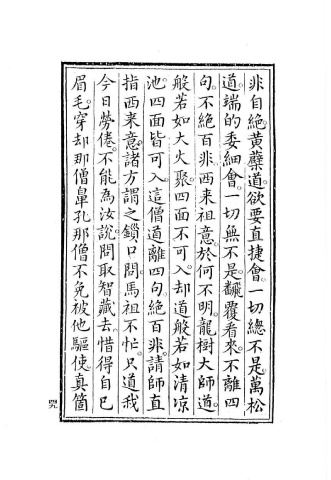 非自絶。黄蘗道。欲要直捷會。一切總不是。萬松
道。端的委細會。一切無不是。飜覆看來。不離四
句。不絶百非。西來祖意。於何不明。龍樹大師道。
般若如大火聚。四面不可入。却道般若如清凉
池。四面皆可入。這僧道離四句。絶百非。請師直
指西來意。諸方謂之鎻口問。馬祖不忙。只道我
今日勞倦。不能為汝說。問取智藏去。惜得自己
眉毛。穿却那僧鼻孔。那僧不免被他驅使。真箇
四九